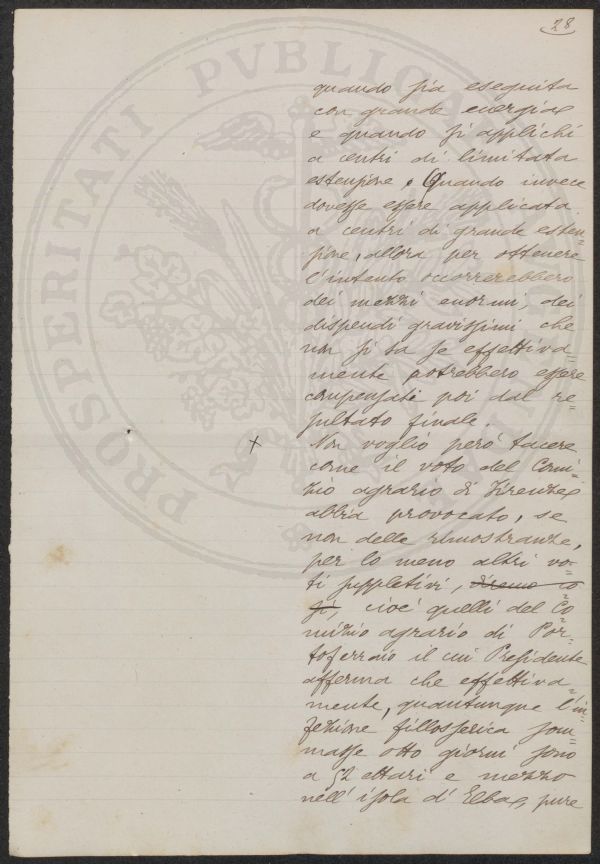 28
quando sia eseguita
con grande energia
e quando si applichi
a centri di limitata
estensione. Quando invece
dovesse essere applicata
a centri di grande esten=
sione, allora per ottenere
l'intento occorrerebbero
dei mezzi enormi, dei
dispendi gravissimi che
non si sa se effettiva=
mente potrebbero essere
compensati poi dal re=
sultato finale.
Non voglio però tacere
come il voto del Comi=
zio agrario di Firenze
abbia provocato, se
non delle rimostranze,
per lo meno altri vo=
ti suppletivi, diremo co=
sì, cioè quelli del Co=
mizio agrario di Por=
toferraio il cui Presidente
afferma che effettiva=
mente, quantunque l'in=
fezione fillosserica som=
masse otto giorni sono
a 52 ettari e mezzo
nell'isola d'Elba, pure
PROSPERITATI PVBLICAE